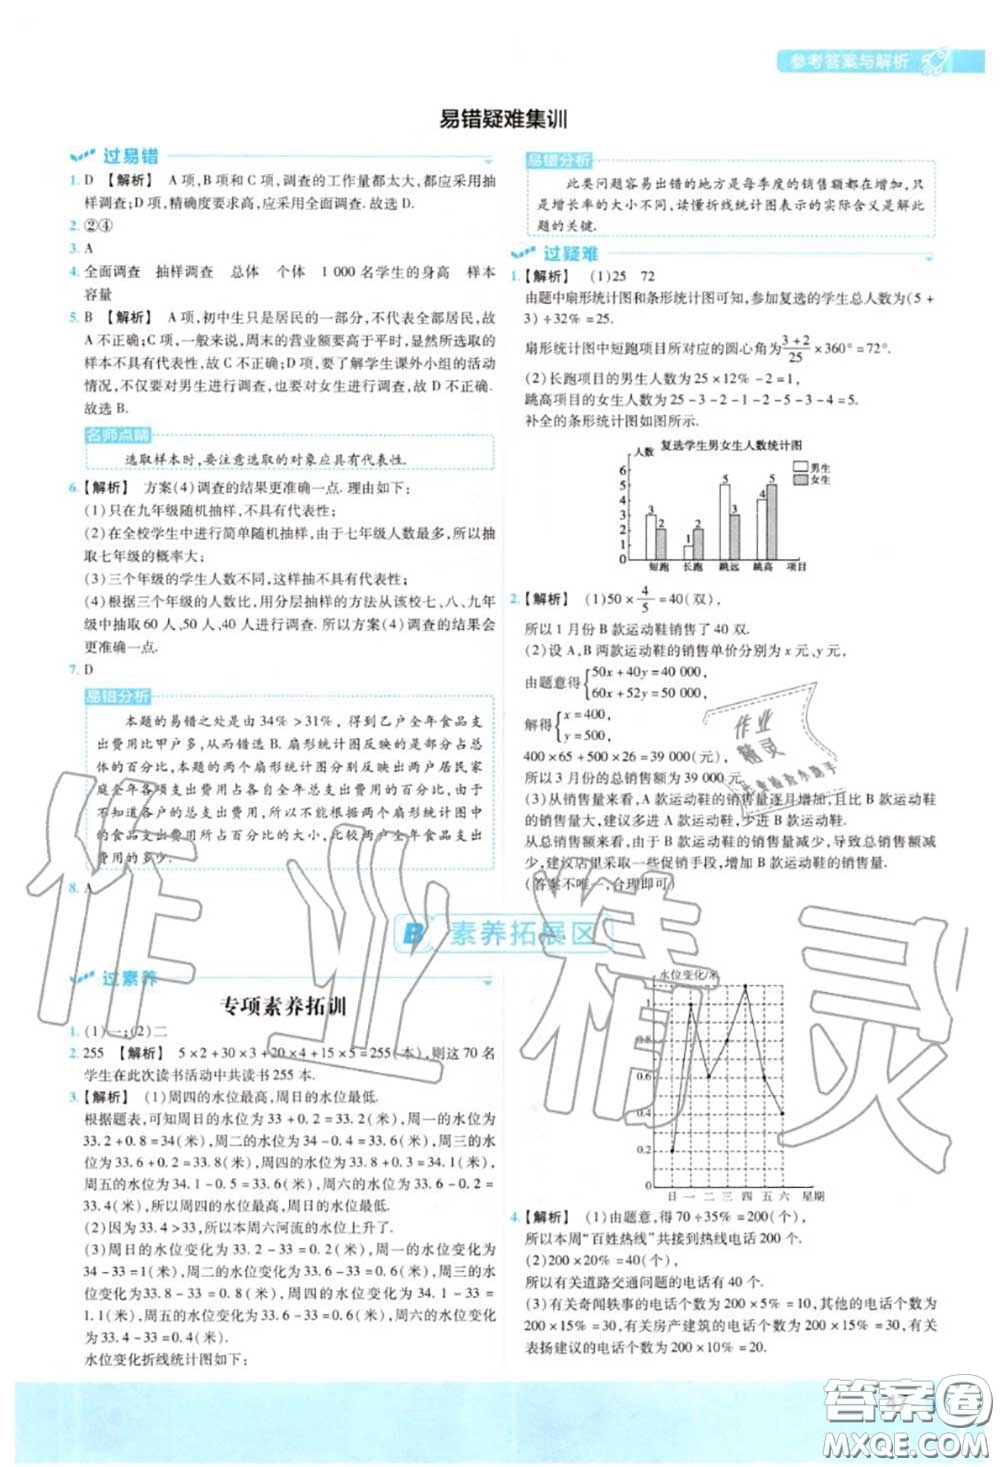 参考答案与解析
易错疑难集训
过易错
1. D 【解析】 A项,B项和C项,调查的工作量都太大,都应采用抽
样调查;D项,精确度要求高,应采用全面调查.故选D.
2. ②④
3. A
4. 全面调查 抽样调查 总体 个体 1 000名学生的身高 样本
容量
5. B 【解析】 A项,初中生只是居民的一部分,不代表全部居民,故
A不正确;C项,一般来说,周末的营业额要高于平时,显然所选取的
样本不具有代表性,故C不正确;D项,要了解学生课外小组的活动
情况,不仅要对男生进行调查,也要对女生进行调查,故D不正确.
故选B.
名师点睛
选取样本时,要注意选取的对象应具有代表性.
6. 【解析】 方案(4)调查的结果更准确一点.理由如下:
(1)只在九年级随机抽样,不具有代表性;
(2)在全校学生中进行简单随机抽样,由于七年级人数最多,所以抽
取七年级的概率大;
(3)三个年级的学生人数不同,这样抽不具有代表性;
(4)根据三个年级的人数比,用分层抽样的方法从该校七、八、九年
级中抽取60人、50人、40人进行调查.所以方案(4)调查的结果会
更准确一点.
7. D
易错分析
本题的易错之处是由34%>31%,得到乙户全年食品支
出费用比甲户多,从而错选B.扇形统计图反映的是部分占总
体的百分比,本题的两个扇形统计图分别反映的是两户居民家
庭全年各项支出费用占各自全年总支出费用的百分比,由于
不知道各户的总支出费用,所以不能根据两个扇形统计图中
的食品支出费用所占百分比的大小,比较两户全年食品支出
费用的多少.
8. A
易错分析
此类问题容易出错的地方是每季度的销售额都在增加,只
是增长率的大小不同,读懂折线统计图表示的实际含义是解此
题的关键.
过疑难
1. 【解析】 (1)25 72
由题中扇形统计图和条形统计图可知,参加复选的学生总人数为(5+
3)÷32%=25.
扇形统计图中短跑项目所对应的圆心角为(3+2)/25×360°=72°.
(2)长跑项目的男生人数为25×12%-2=1,
跳高项目的女生人数为25-3-2-1-2-5-3-4=5.
补全的条形统计图如图所示.
复选学生男女生人数统计图
人数
6
5
4
3
2
1
0
3 2 1 2 5 3 4 5
男生
女生
短跑 长跑 跳远 跳高 项目
2. 【解析】 (1)50×4/5=40(双),
所以1月份B款运动鞋销售了40双.
(2)设A,B两款运动鞋的销售单价分别为x元、y元,
由题意得{50x+40y=40 000,
60x+52y=50 000,
解得{x=400,
y=500.
400×65+500×26=39 000(元),
所以3月份的总销售额为39 000元.
(3)从销售量来看,A款运动鞋的销售量逐月增加,且比B款运动鞋
的销售量大,建议多进A款运动鞋,少进B款运动鞋.
从总销售额来看,由于B款运动鞋的销售量减少,导致总销售额减
少,建议店里采取一些促销手段,增加B款运动鞋的销售量.
(答案不唯一,合理即可)
B 素养拓展区
过素养
专项素养拓训
1. (1)一;(2)二
2. 255 【解析】 5×2+30×3+20×4+15×5=255(本),则这70名
学生在此次读书活动中共读书255本.
3. 【解析】 (1)周四的水位最高,周日的水位最低.
根据题表,可知周日的水位为33+0.2=33.2(米),周一的水位为
33.2+0.8=34(米),周二的水位为34-0.4=33.6(米),周三的水
位为33.6+0.2=33.8(米),周四的水位为33.8+0.3=34.1(米),
周五的水位为34.1-0.5=33.6(米),周六的水位为33.6-0.2=
33.4(米),所以周四的水位最高,周日的水位最低.
(2)因为33.4>33,所以本周六河流的水位上升了.
(3)周日的水位变化为33.2-33=0.2(米),周一的水位变化为
34-33=1(米),周二的水位变化为33.6-33=0.6(米),周三的水位
变化为33.8-33=0.8(米),周四的水位变化为34.1-33=
1.1(米),周五的水位变化为33.6-33=0.6(米),周六的水位变化
为33.4-33=0.4(米).
水位变化折线统计图如下:
水位变化/米
1
0.8
0.6
0.4
0.2
0
日 一 二 三 四 五 六 星期
4. 【解析】 (1)由题意,得70÷35%=200(个),
所以本周“百姓热线”共接到热线电话200个.
(2)200×20%=40(个),
所以有关道路交通问题的电话有40个.
(3)有关奇闻轶事的电话个数为200×5%=10,其他的电话个数为
200×15%=30,有关房产建筑的电话个数为200×15%=30,有关
表扬建议的电话个数为200×10%=20.
作业精灵
作业
精灵
答案卷
MXQE.COM